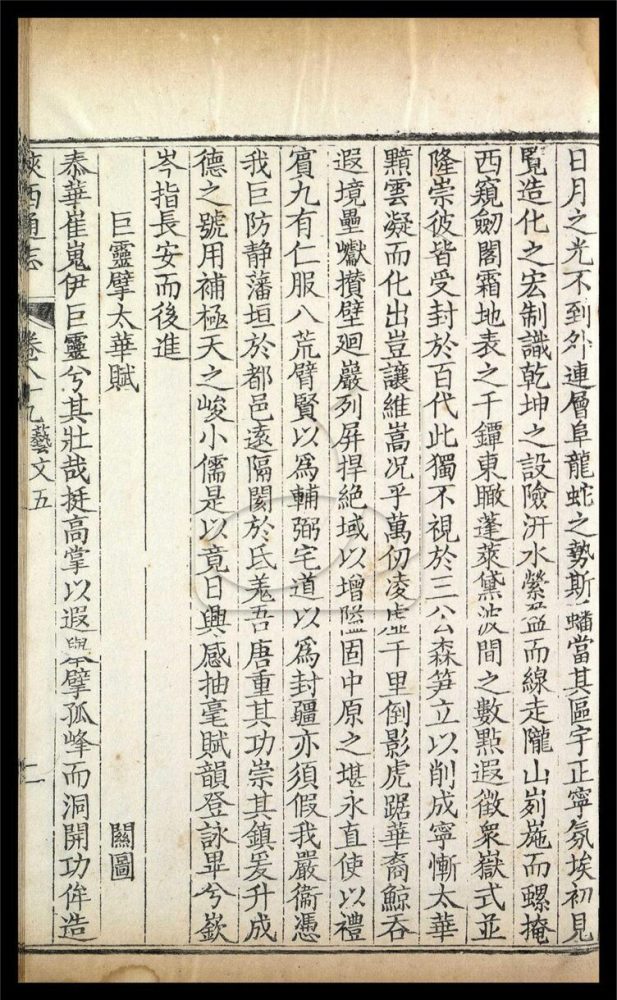 日月之光不到外連層阜龍蛇之勢斯蟠當其區宇正寧氛埃初見
覽造化之宏制識乾坤之設險汧水縈盈而線走隴山峛崺而螺掩
西窺劒閣霜地表之千鐔東瞰蓬萊黛波間之數點遐徵衆嶽式並
隆崇彼皆受封於百代此獨不視於三公森笋立以削成寧慚太華
黮雲凝而化出豈讓維嵩况乎萬仞凌虛千里倒影虎踞華裔鯨吞
遐境壘巘攢壁廻巖列屏捍絕域以增隘固中原之堪永直使以禮
賔九有仁服八荒臂賢以爲輔弼宅道以爲封疆亦須假我嚴衞憑
我巨防静藩垣於都邑逺隔閡於氐羗吾唐重其功崇其鎮爰升成
德之號用補極天之峻小儒是以竟日興感抽毫賦韻登詠畢兮嶔
岑指長安而後進
巨靈擘太華賦 闗圖
泰華崔嵬伊巨靈兮其壯哉挺高掌以遐舉擘孤峰而洞開功侔造
陝西通志 卷八十九藝文五 二